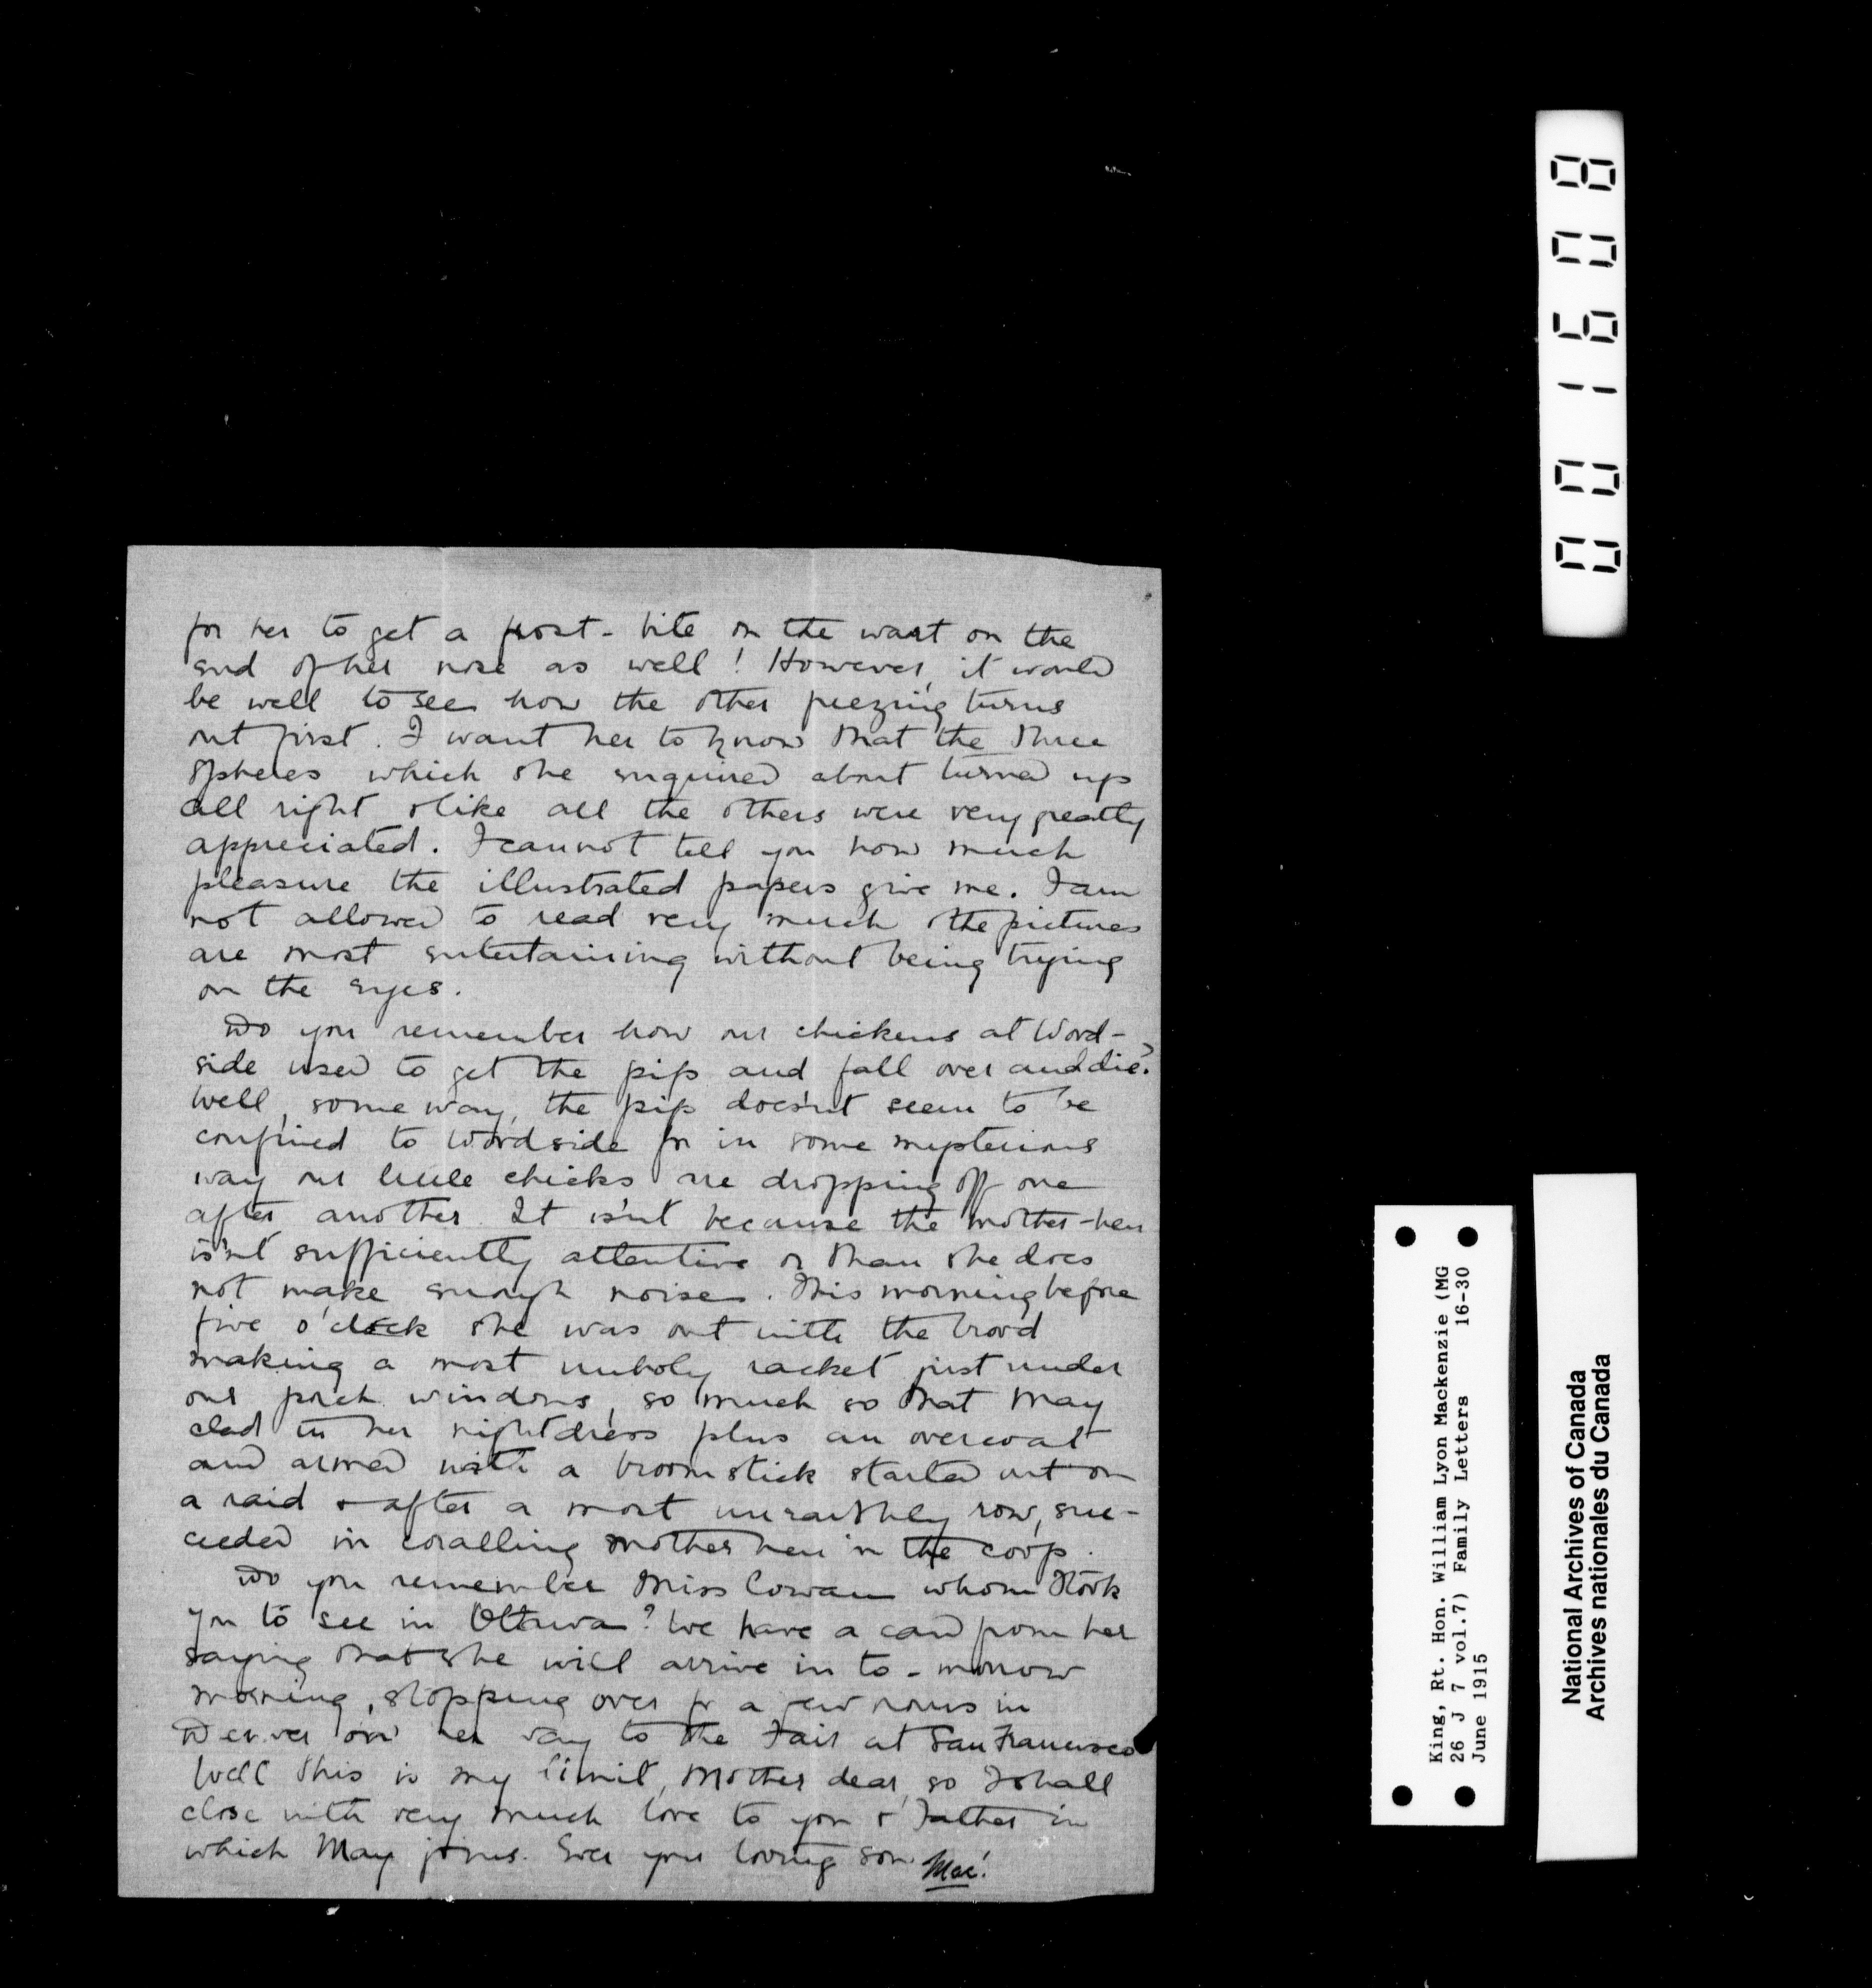 for her to get a frost-bite on the wart on the
end of her nose as well! However, it would
be well to see how the other freezing turns
out first. I want her to know that the three
Spheres which she enquired about turned up
all right & like all the others were very greatly
appreciated. I cannot tell you how much
pleasure the illustrated papers give me. I am
not allowed to read very much & the pictures
are most entertaining without being trying
on the eyes.
Do you remember how our chickens at Wood-
side used to get the pip and fall over and die?
Well, some way, the pip doesn't seem to be
confined to Woodside for in some mysterious
way our little chicks are dropping off one
after another. It isn't because the mother-hen
isn't sufficiently attentive or than she does
not make enough noise. This morning before
five o'clock she was out with the brood
making a most unholy racket just under
our porch windows, so much so that May
clad in her nightdress plus an overcoat
and armed with a broomstick started out on
a raid & after a most unearthly row, suc-
ceeded in coralling mother hen in the coop.
Do you remember Miss Cowan whom I took
you to see in Ottawa? We have a card from her
saying that she will arrive in to-morrow
morning, stopping over for a few hours in
Denver on her way to the Fair at San Francisco
Well this is my limit, Mother dear, so I shall
close with very much love to you & Father in
which May joins. Ever your loving son. Mac!
001608
King, Rt. Hon. William Lyon Mackenzie (MG
26 J 7 vol.7) Family Letters 16-30
June 1915
National Archives of Canada
Archives nationales du Canada